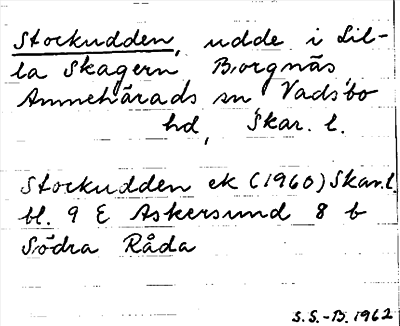 Stockudden, udde i Lil-
la Skagern, Borgnäs,
Amnehärads sn, Vadsbo
hd, Skar. l.
Stockudden ek (1960) Skar. l.
bl. 9 E Askersund 8 b
Södra Råda
S.S.-B. 1962